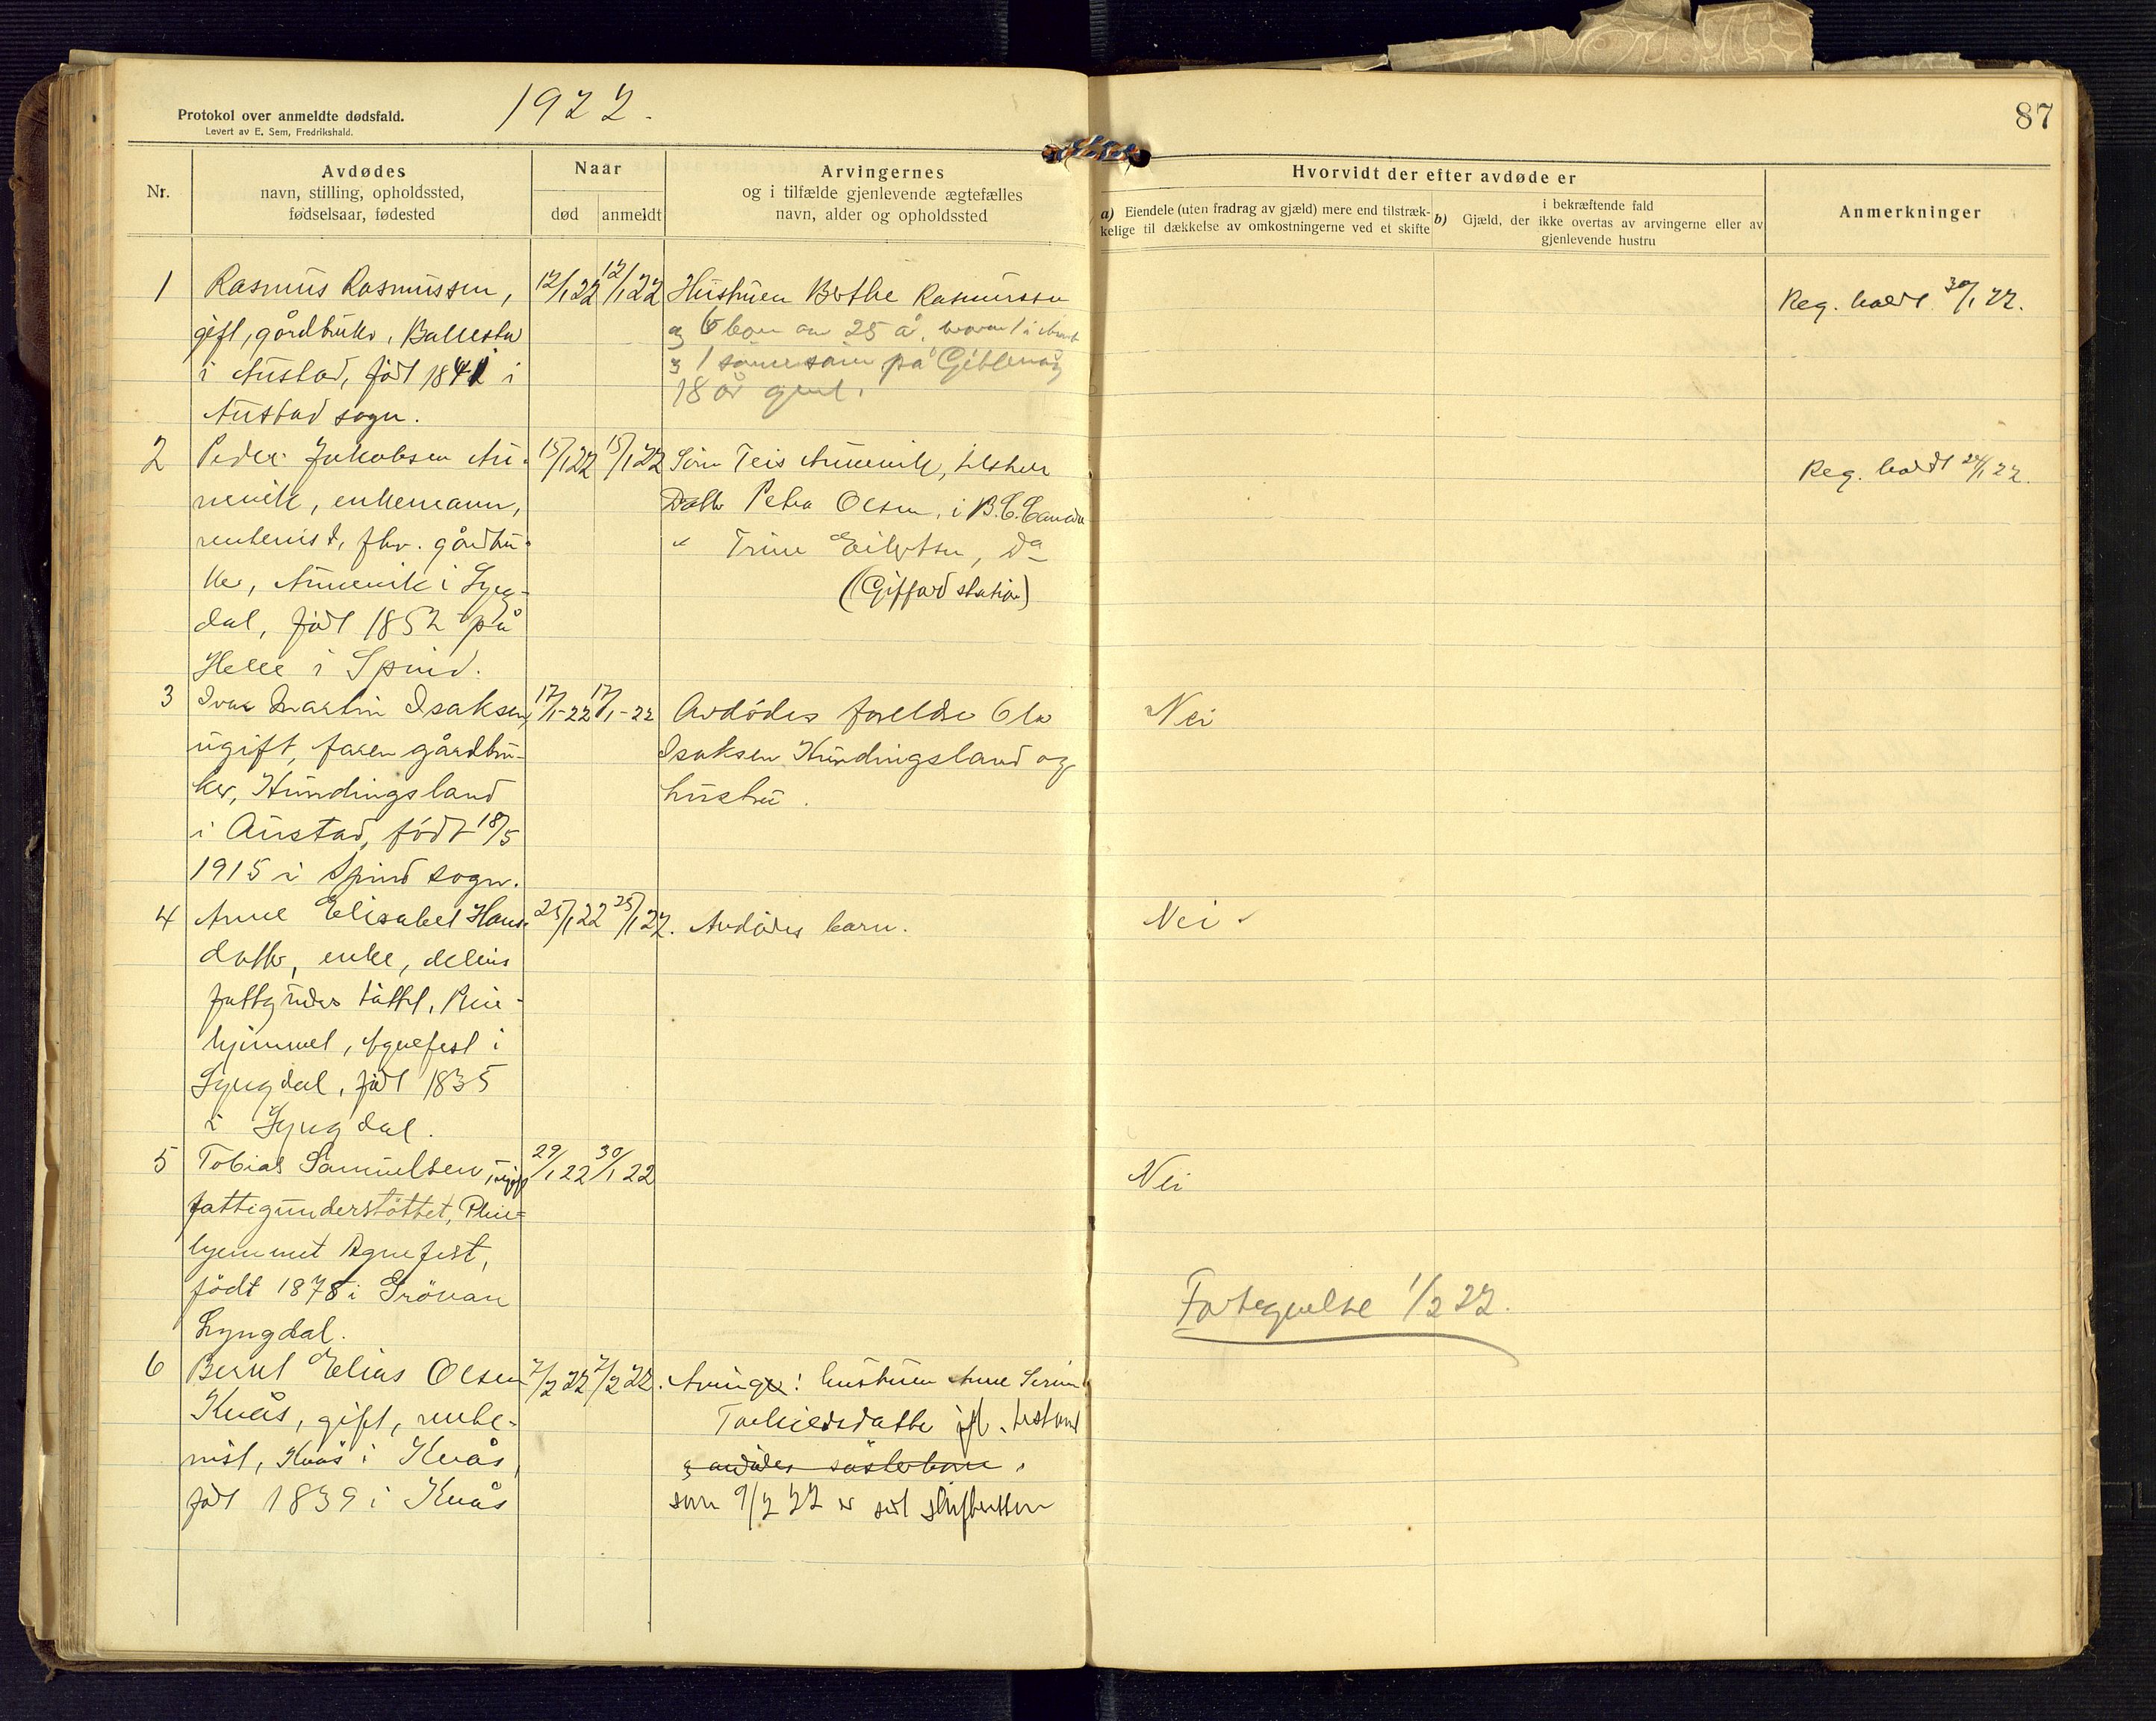 Protokol over anmeldte dødsfald.
Levert av E. Sem, Fredrikshald.
1922.
87
Nr.
Avdødes
navn, stilling, opholdssted,
fødselsaar, fødested
Naar
død
anmeldt
Arvingernes
og i tilfælde gjenlevende ægtefælles
navn, alder og opholdssted
Hvorvidt der efter avdøde er
a) Eiendele (uten fradrag av gjæld) mere end tilstræk-
kelige til dækkelse av omkostningerne ved et skifte
i bekræftende fald
b) Gjæld, der ikke overtas av arvingerne eller av
gjenlevende hustru
Anmerkninger
1
Rasmus Rasmussen,
gift, gårdbruker,
i Austad, født 1841 i
Austad sogn.
12/1 22
12/1 22
Hustruen Berthe Rasmussen
og 6 barn over 25 å.
og 1 sønnesøn på
18 år gml.
Reg. holdt 30/1 22.
2
Peder Jakobsen Au-
nevik, enkemann,
rentenist, fhv. gårdbru-
ker, Aunevik i Lyng-
dal, født 1852 på
Helle i Spind.
15/1 22
15/1 22
Søn Teis Aunevik, tilstede
Datter Petra Olsen, i B.C. Canada
" Trine Eilertsen, do
(Giffard station)
Reg. holdt 24/1 22.
3
Ivar Martin Isaksen,
ugift, faren gårdbru-
ker, Hundingsland
i Austad, født 18/5
1915 i Spind sogn.
17/1-22
17/1-22
Avdødes foreldre Ole
Isaksen Hundingsland og
hustru.
Nei
4
Anne Elisabet Hans-
datter, enke, delvis
fattigunderstøttet, Plei-
hjemmet, Agnefest i
Lyngdal, født 1835
i Lyngdal.
25/1 22
25/1 22.
Avdødes barn.
Nei
5
Tobias Samuelsen, ugift
fattigunderstöttet, Pleie=
hjemmet Agnefest,
födt 1878 i Grövan
Lyngdal.
29/1 22
30/1 22
Nei
Fortegnelse 1/2 22.
6
Bernt Elias Olsen
Kvås, gift, rente-
nist, Kvås i Kvås,
født 1839 i Kvås
7/2 22
7/2 22.
Arvinger: hustruen Anne Serine
Torkjelsdatter ifl. testam
og avdødes søsterbarn.
som 9/2 22 er set skifteretten